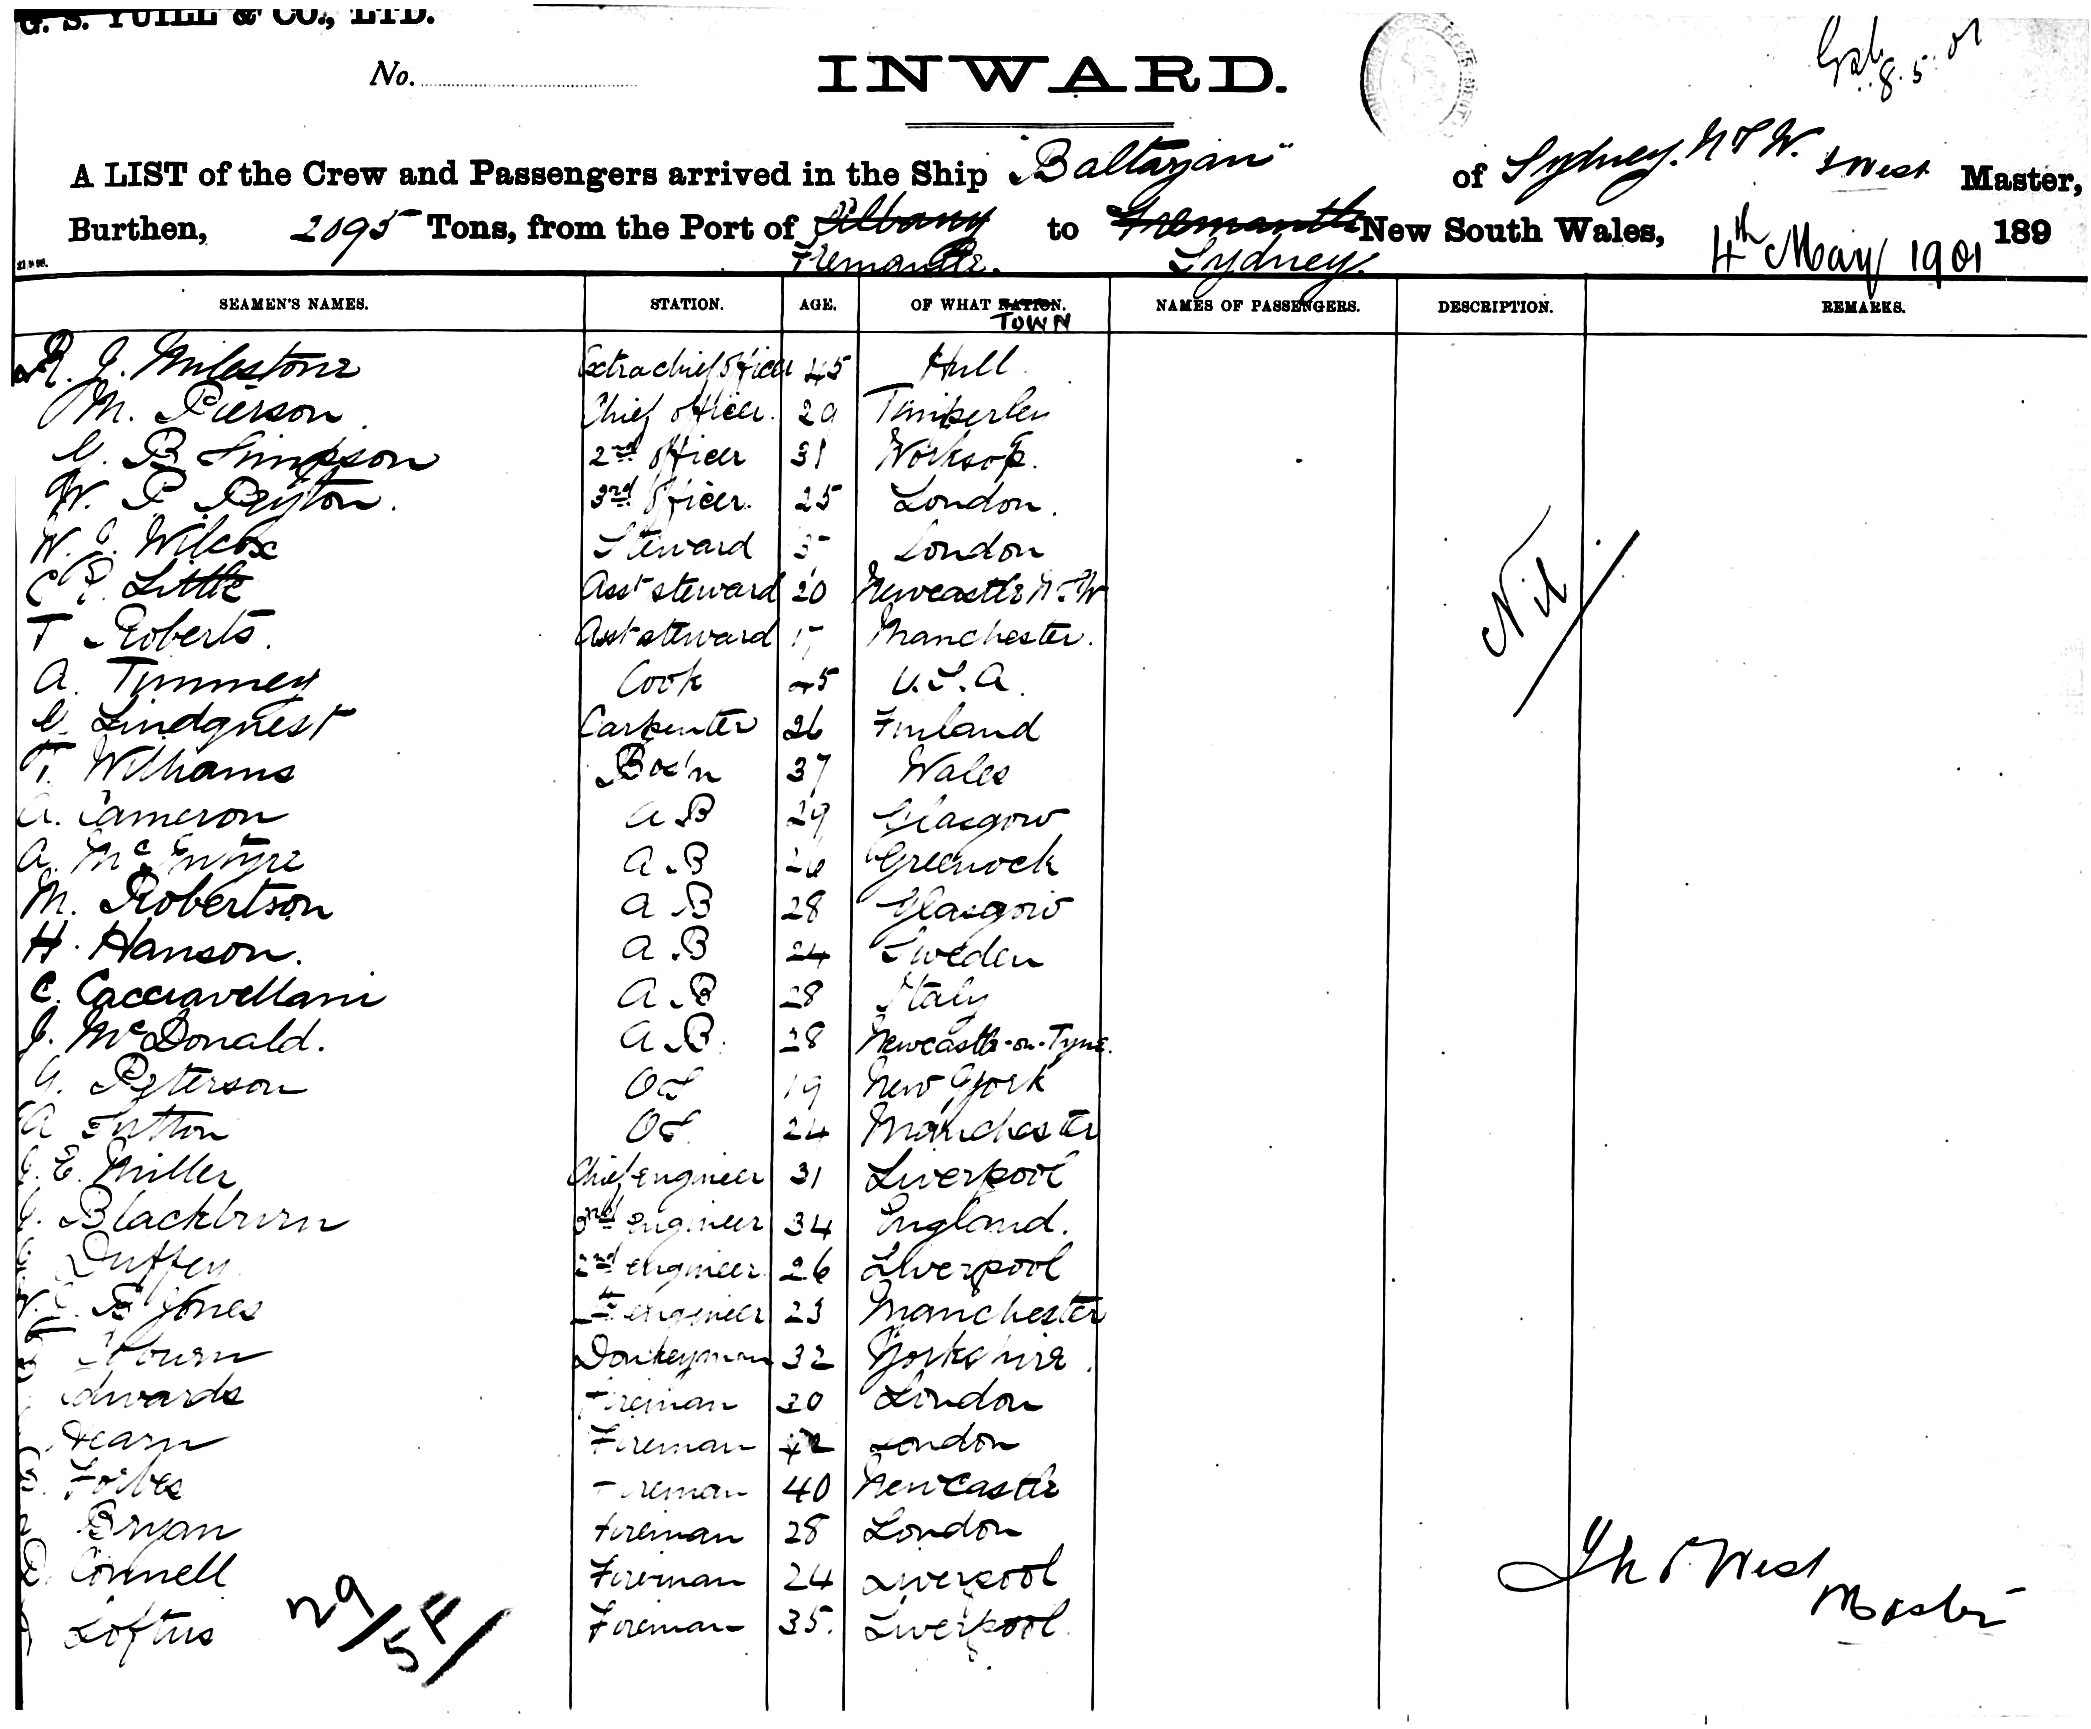 G. S. YUILL & CO., LTD.
No.
INWARD.
8.5.01
A LIST of the Crew and Passengers arrived in the Ship "Baltazan" of Sydney. N S W. J West Master,
Burthen, 2095 Tons, from the Port of Albany to Fremantle New South Wales, 4th May 1901 189
Fremantle. Sydney.
SEAMEN'S NAMES. STATION. AGE. OF WHAT NATION. NAMES OF PASSENGERS. DESCRIPTION. REMARKS.
TOWN
R. J. Milestone Extra chief officer 45 Hull
M. Pierson Chief officer. 29 Timperley
G. B Simpson 2nd officer 31 Worksop.
W. P Peyton. 3rd officer. 25 London.
W. J. Wilcox Steward London
C. P. Little Asst steward 20 Newcastle N S W
T Roberts. Asst steward Manchester.
A. Timmey Cook 45 U.S.A.
G. Lindquest Carpenter 26 Finland
T. Williams Bos'n 37 Wales
A. Cameron A B 29 Glasgow
A. McIntyre A.B 26 Greenock
M. Robertson A B 28 Glasgow
H. Hanson. A.B 24 Sweden
C. Cacciavellani A.B 28 Italy
J. McDonald. A.B. 28 Newcastle-on-Tyne.
G. Peterson OS 19 New York
A Sutton OS. 24 Manchester
J. E. Miller Chief engineer 31 Liverpool
J. Blackburn 3rd engineer 34 England.
Duffey 2nd engineer. 26 Liverpool
B Jones engineer 23 Manchester
Donkeyman 32 Yorkshire.
Edwards Fireman 30 London
Hearn Fireman 42 London
Forbes Fireman 40 Newcastle
Bryan Fireman 28 London
D. Connell Fireman 24 Liverpool
Loftus Fireman 35. Liverpool.
Nil
29/54/
West
Master